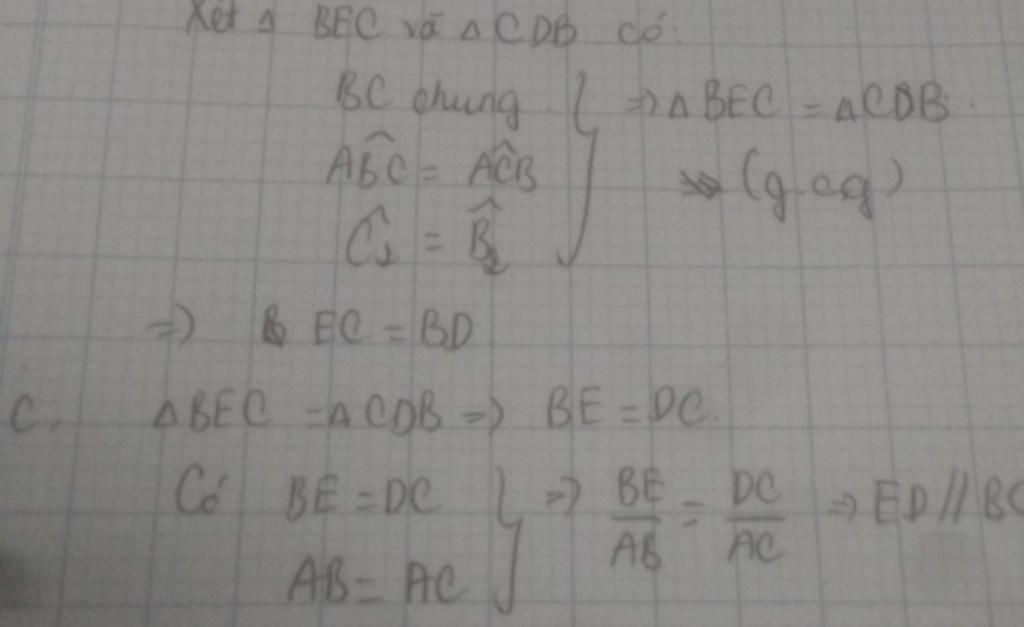 Xét Δ BEC và Δ CDB có:
BC chung
⇒ Δ BEC = Δ CDB.
ABC^ = ACB^
(g.c.g)
C₂^ = B₂^
⇒ EC = BD
C. Δ BEC = Δ CDB ⇒ BE = DC.
Có BE = DC
AB = AC
⇒ BE/AB = DC/AC ⇒ ED // BC